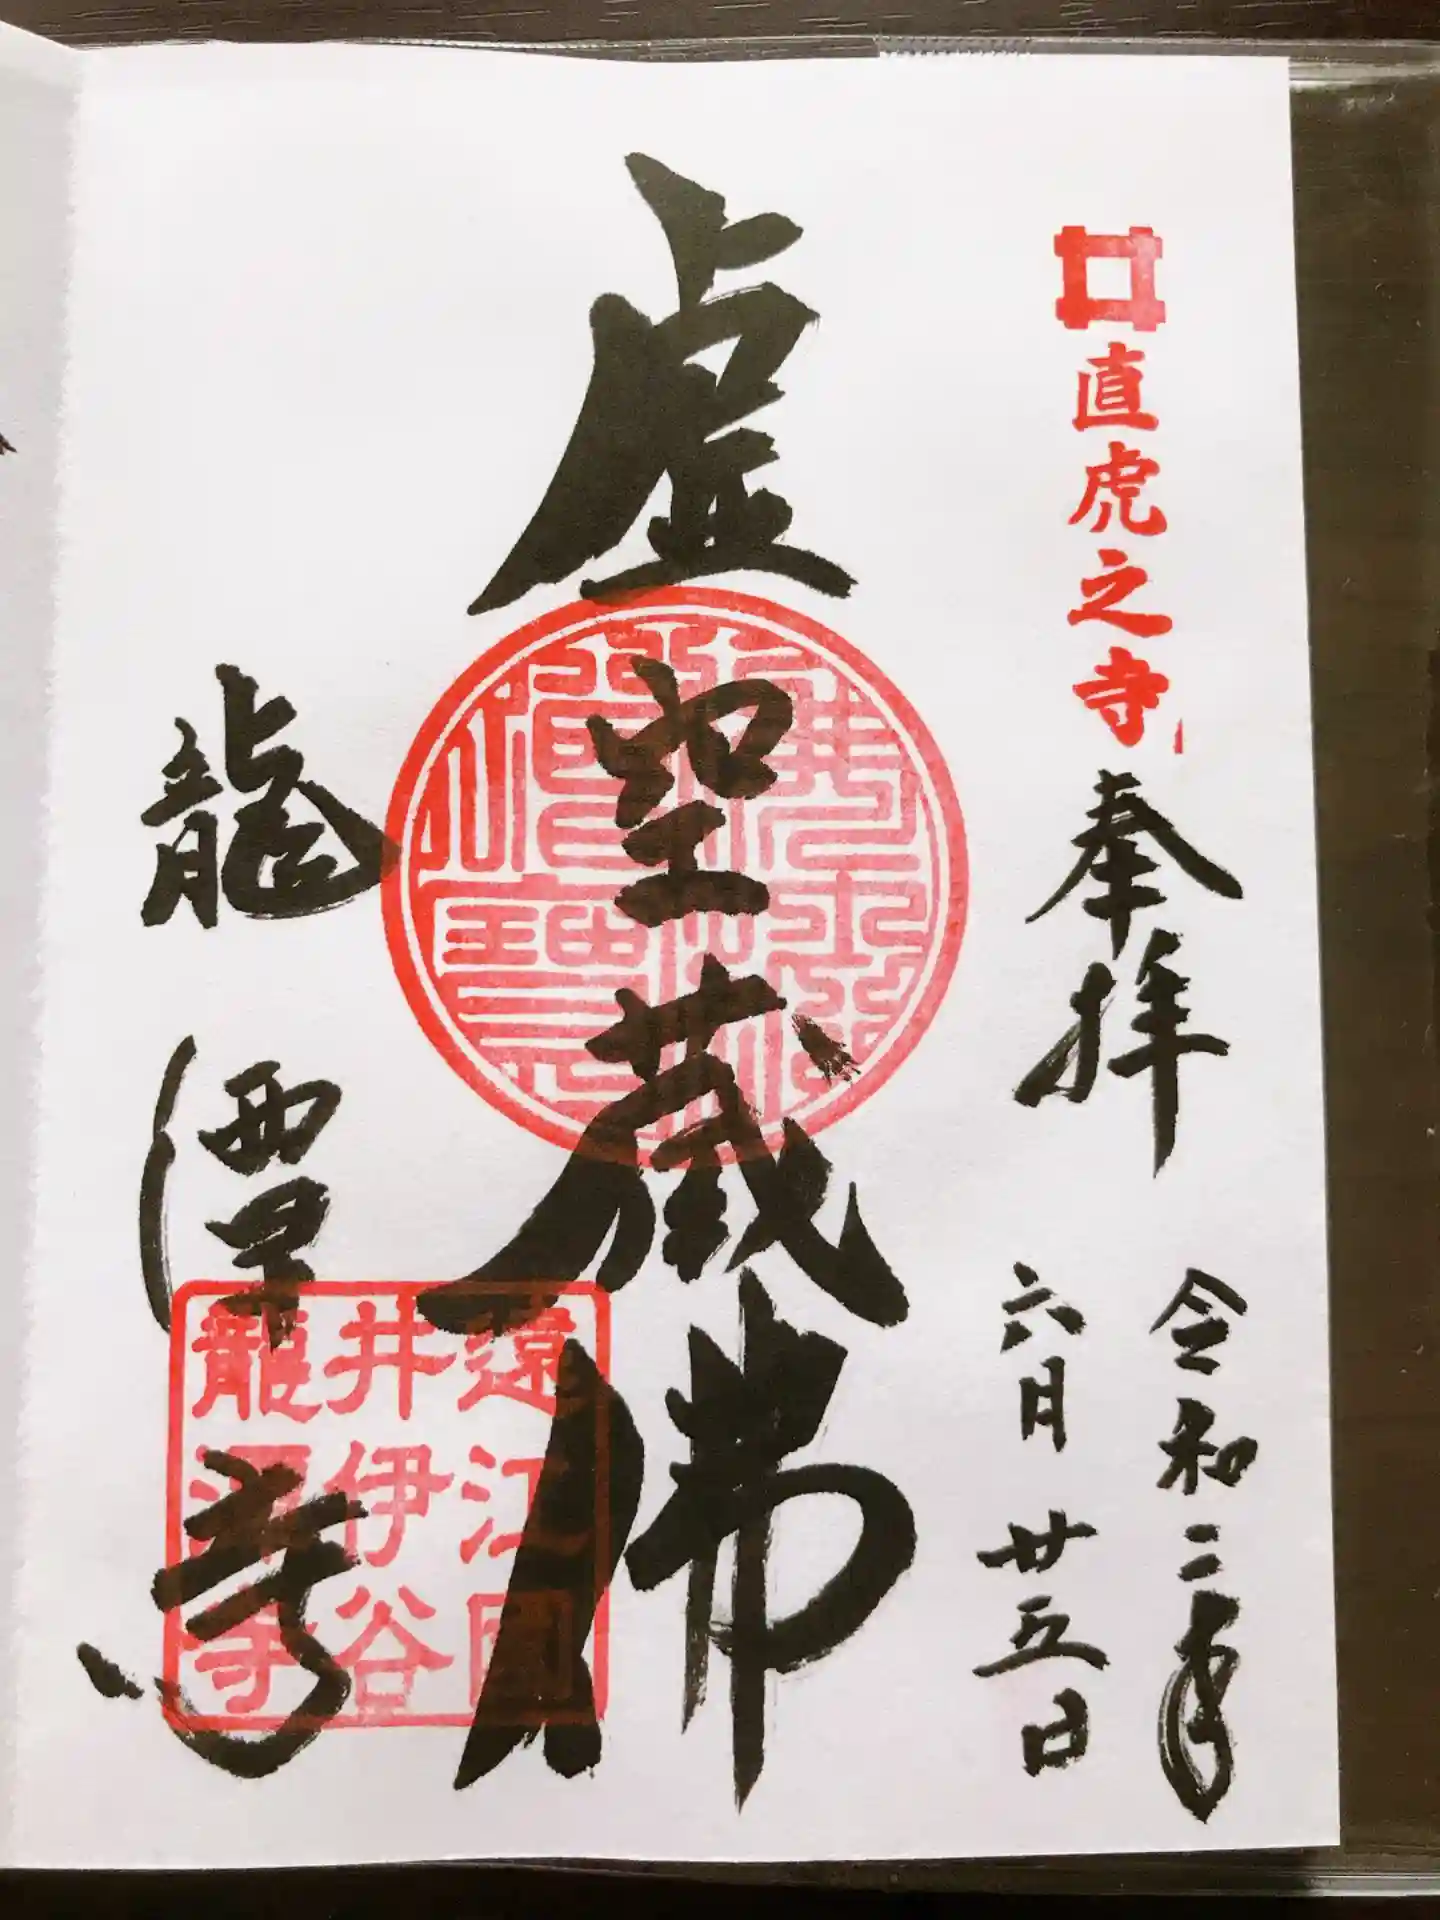 直虎之寺
奉拝
令和二年
六月廿五日
虚空蔵佛
龍潭寺
遠江國
井伊谷
龍潭寺